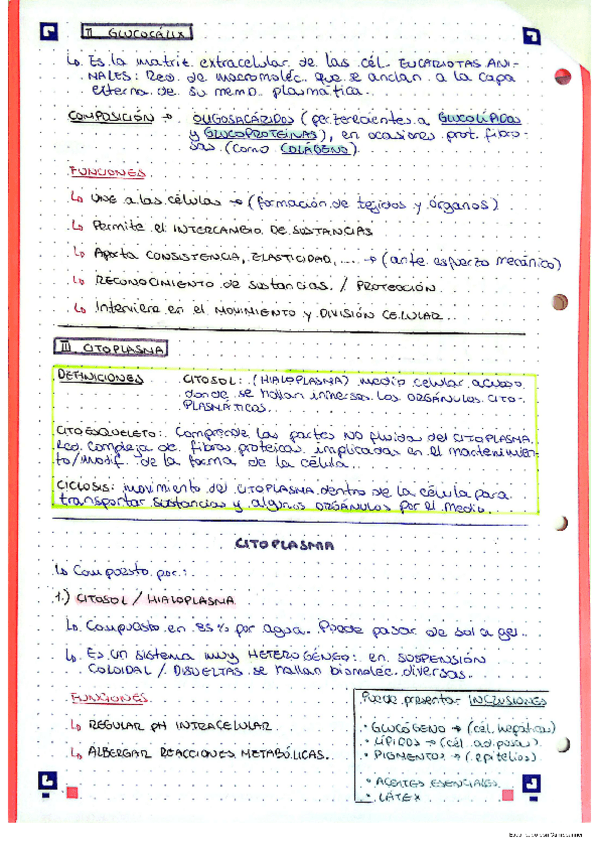 II GLUCOCÁLIX
↳ Es la matriz extracelular de las cél. EUCARIOTAS ANI-
MALES: Red de macromoléc. que se anclan a la capa
externa de su memb. plasmática.
COMPOSICIÓN → OLIGOSACÁRIDOS (pertenecientes a GLUCOLÍPIDOS
y GLUCOPROTEÍNAS), en ocasiones prot. fibro-
sas (como COLÁGENO)
FUNCIONES
↳ UNE a las células → (formación de tejidos y órganos)
↳ Permite el INTERCAMBIO DE SUSTANCIAS
↳ Aporta CONSISTENCIA, ELASTICIDAD, ... → (ante esfuerzo mecánico)
↳ RECONOCIMIENTO de sustancias. / PROTECCIÓN
↳ Interviene en el MOVIMIENTO y DIVISIÓN CELULAR...
III CITOPLASMA
DEFINICIONES
CITOSOL: (HIALOPLASMA) medio celular acuoso
donde se hallan inmersos los ORGÁNULOS CITO-
PLASMÁTICOS.
CITOESQUELETO: Comprende las partes NO fluidas del CITOPLASMA.
Red compleja de fibras proteicas implicadas en el mantenimien-
to/modif. de la forma de la célula.
CICLOSIS: movimiento del CITOPLASMA dentro de la célula para
transportar sustancias y algunos ORGÁNULOS por el medio.
CITOPLASMA
↳ Compuesto por:
1.) CITOSOL / HIALOPLASMA
↳ Compuesto en 85% por agua. Puede pasar de sol a gel.
↳ Es un sistema muy HETEROGÉNEO: en SUSPENSIÓN
COLOIDAL / DISUELTAS se hallan biomoléc. diversas.
FUNCIONES
↳ REGULAR pH INTRACELULAR
↳ ALBERGAR REACCIONES METABÓLICAS.
Puede presentar INCLUSIONES
· GLUCÓGENO → (cél. hepáticas)
· LÍPIDOS → (cél. adiposas)
· PIGMENTOS → (epitelios)
· ACEITES ESENCIALES
· LÁTEX